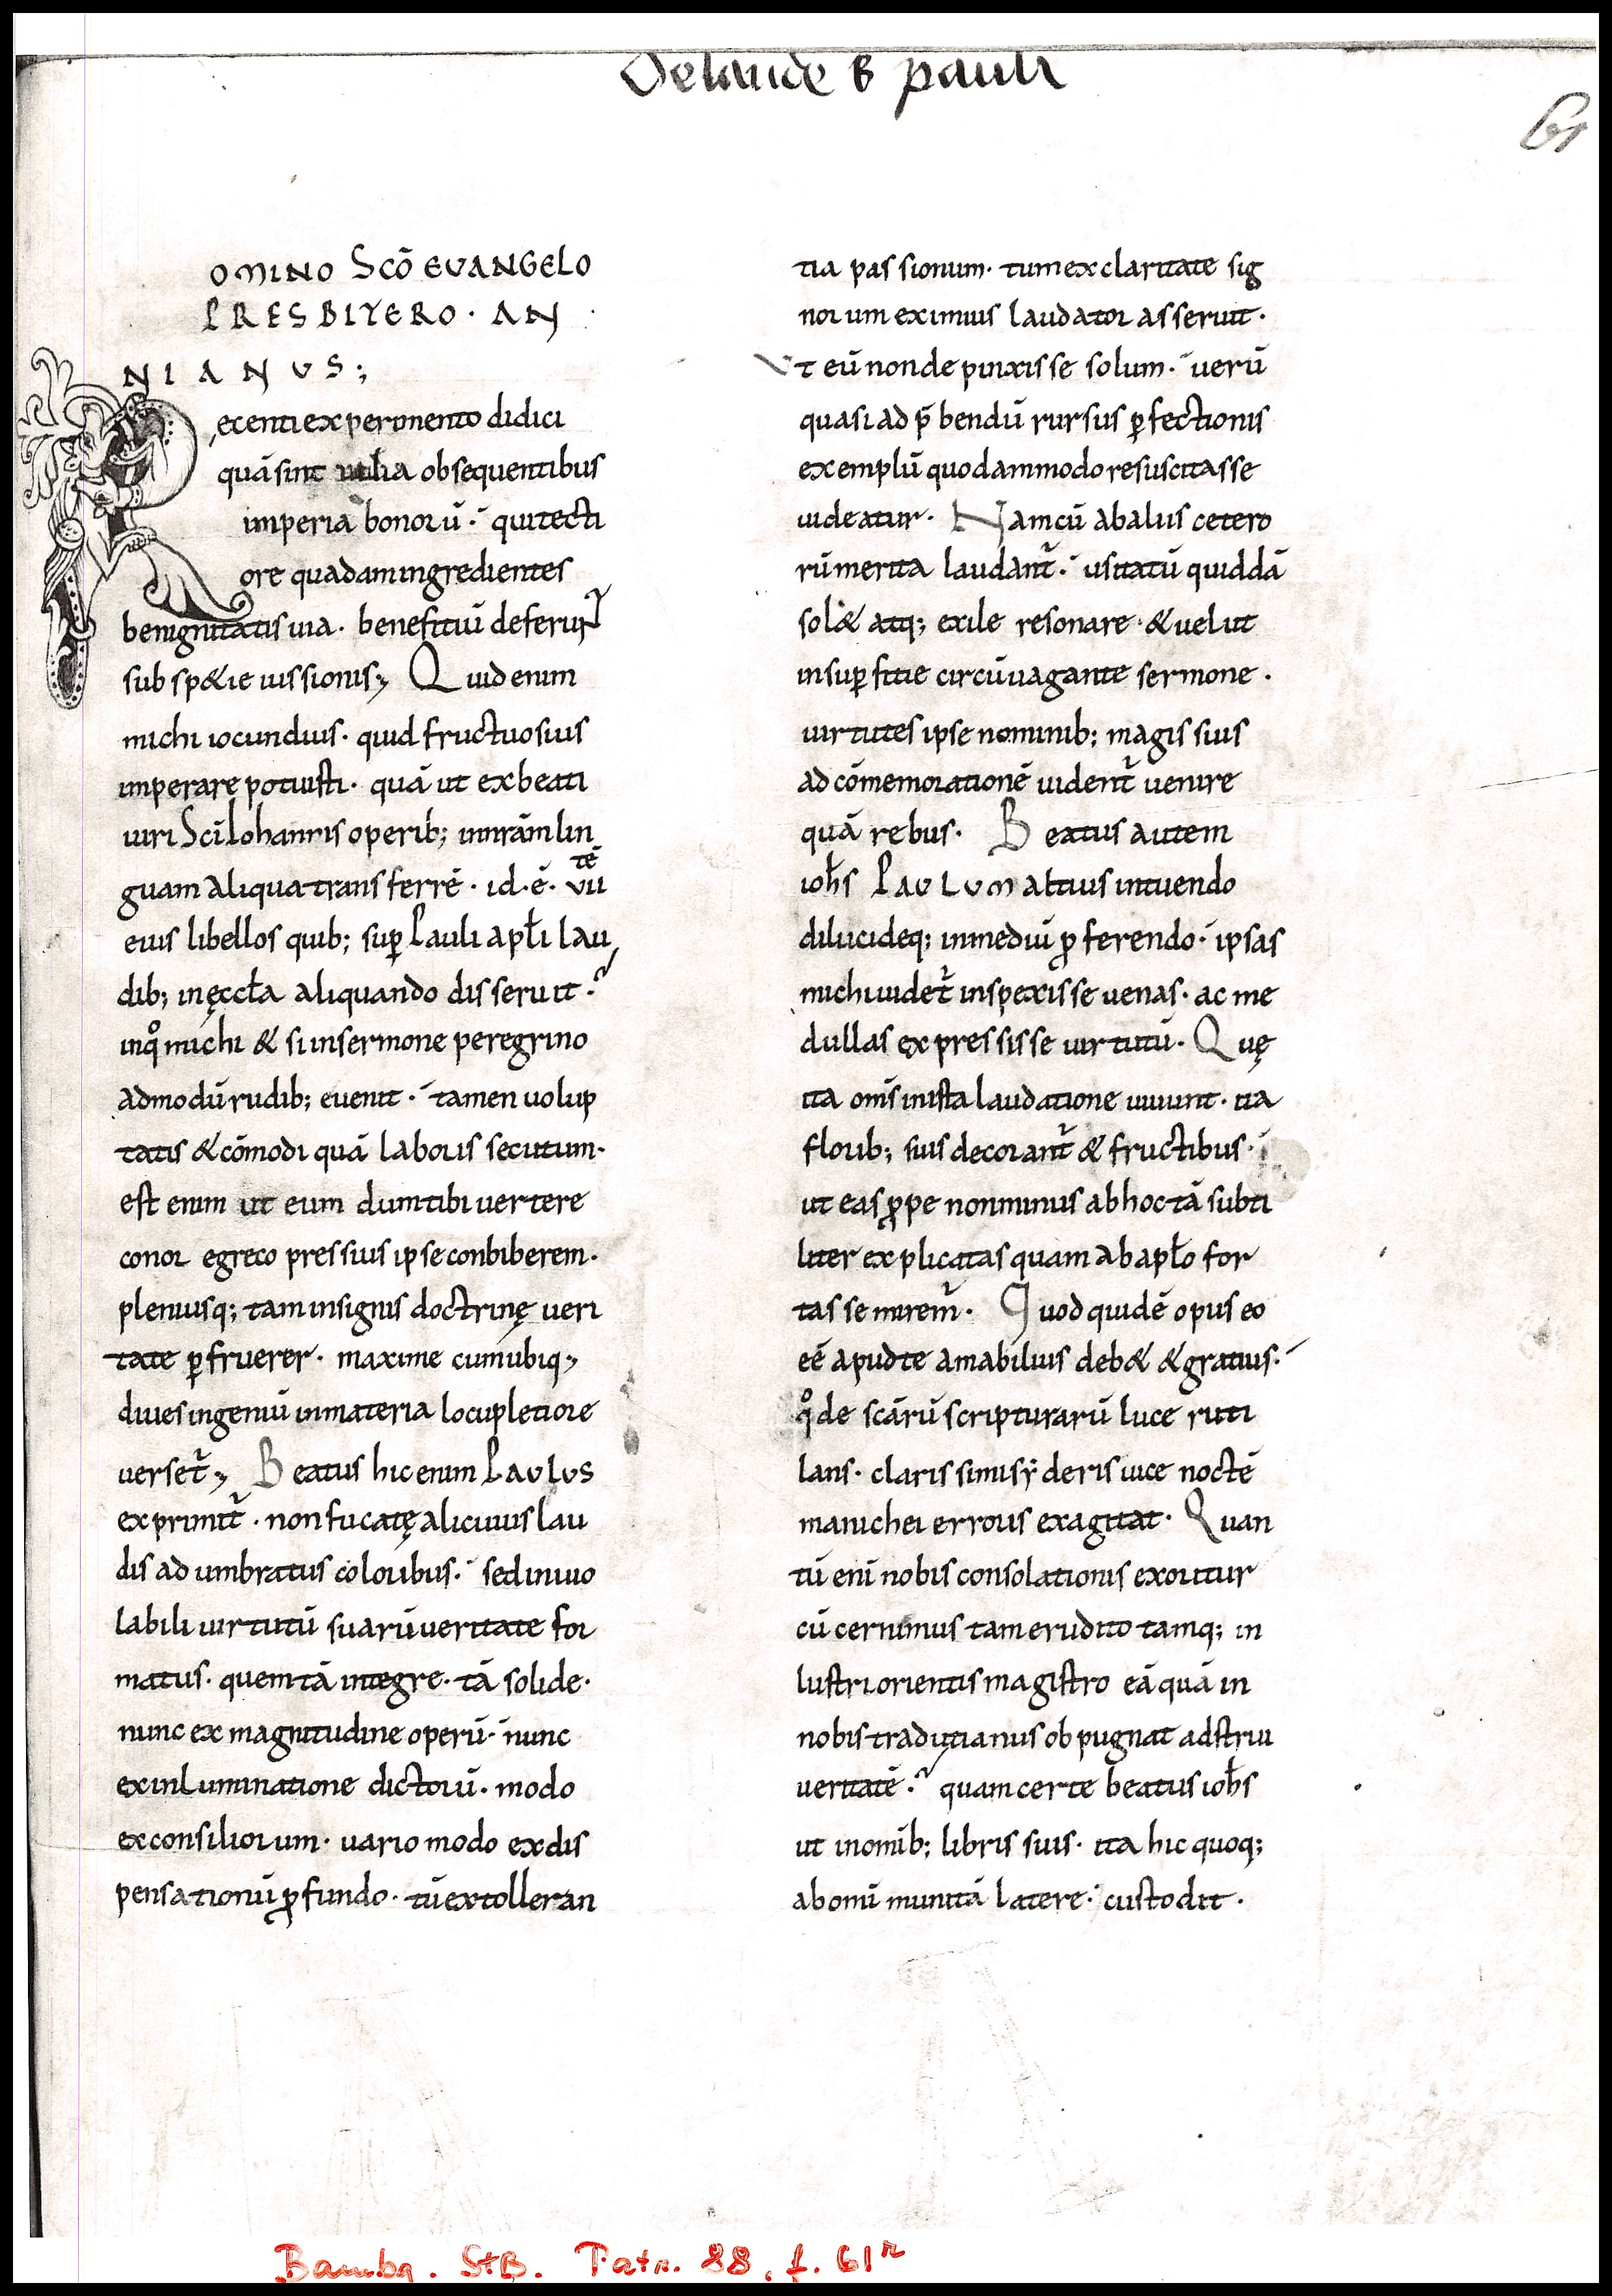 De laude b pauli
61
OMINO SCŌ EVANGELO
PRESBITERO · AN
NIANUS;
Recenti experimento didici
quā sint utilia obsequentibus
imperia bonorū· qui tecti
ore quadam ingredientes
benignitatis uia· benefitiū deferunt᷑
sub sp&ie iussionis; Quid enim
michi iocundius· quid fructuosius
imperare potuisti· quā ut ex beati
uiri Scī Iohannis operib; in nrām lin
guam aliqua transferrē· id·ē· VII tē
eius libellos quib; sup̱ Pauli apłi lau
dib; in ęccła aliquando disseruit·
inqͦ michi & si in sermone peregrino
admodū rudib; euenit· tamen uolup
tatis & cōmodi quā laboris secutum·
est enim ut eum dum tibi uertere
conor e greco pressius ipse conbiberem·
pleniusq; tam insignis doctrinę ueri
tate ꝑfruerer· maxime cum ubiq;
diues ingeniū in materia locupletiore
uerset᷑; Beatus hic enim PAULUS
exprimit᷑· non fucatę alicuius lau
dis adumbratus coloribus· sed inuio
labili uirtutū suarū ueritate for
matus· quem tā integre· tā solide·
nunc ex magnitudine operū· nunc
ex inluminatione dictorū· modo
ex consiliorum· uario modo ex dis
pensationū ꝓfundo· tū ex tolleran
tia passionum· tum ex claritate sig
norum eximius laudator asseruit·
Ut eū non depinxisse solum· uerū
quasi ad p̄bendū rursus ꝑfectionis
exemplū quodammodo resuscitasse
uideatur· Nam cū ab aliis cetero
rū merita laudant᷑· usitatū quiddā
sol& atq; exile resonare· & uelut
in suꝑfitie circūuagante sermone·
uirtutes ipse nominib; magis suis
ad cōmemorationē uident᷑ uenire
quā rebus· Beatus autem
ioħs PAULUM altius intuendo
dilucideq; in mediū ꝓferendo· ipsas
michi uidet᷑ inspexisse uenas· ac me
dullas expressisse uirtutū· Quę
ita oms̄ in ista laudatione uiuunt· ita
florib; suis decorant᷑ & fructibus·
ut eas ꝓpe non minus ab hoc tā subti
liter explicatas quam ab apło for
tasse mirem᷑· Quod quidē opus eo
eē apud te amabilius deb& & gratius·
qͦ de scārū scripturarū luce ruti
lans· clarissimi syderis uice noctē
manichei erroris exagitat· Quan
tū enī nobis consolationis exoritur
cū cernimus tam erudito tamq; in
lustri orientis magistro eā quā in
nobis traducianus obpugnat adstrui
ueritatē· quam certe beatus ioħs
ut in omīb; libris suis· ita hic quoq;
ab omī munitā latere· custodit·
Bambg. StB. Patr. 88, f. 61r